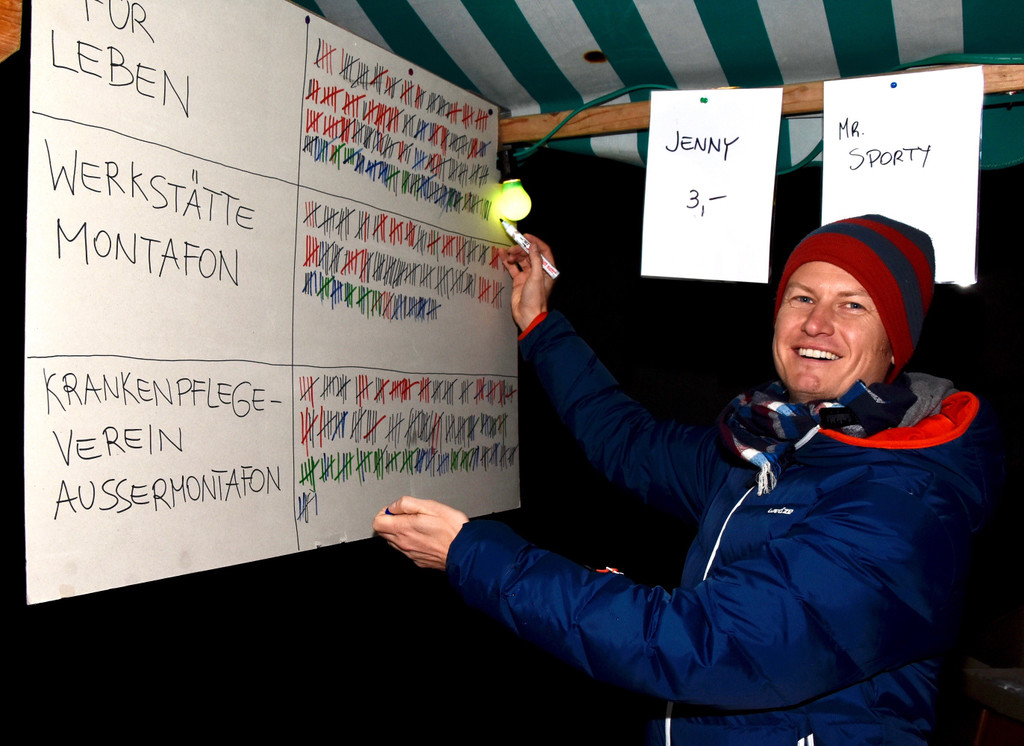 FÜR
LEBEN
WERKSTÄTTE
MONTAFON
KRANKENPFLEGE-
VEREIN
AUSSERMONTAFON
JENNY
3,-
MR.
SPORTY